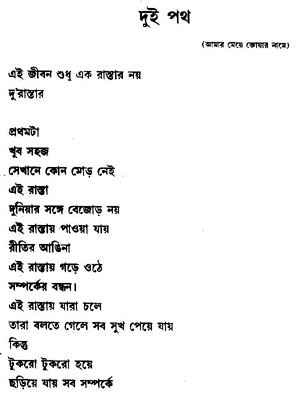 দুই পথ
(আমার মেয়ে জোয়ার নামে)
এই জীবন শুধু এক রাস্তার নয়
দু'রাস্তার
প্রথমটা
খুব সহজ
সেখানে কোন মোড় নেই
এই রাস্তা
দুনিয়ার সঙ্গে বেজোড় নয়
এই রাস্তায় পাওয়া যায়
রীতির আঙিনা
এই রাস্তায় গড়ে ওঠে
সম্পর্কের বন্ধন।
এই রাস্তায় যারা চলে
তারা বলতে গেলে সব সুখ পেয়ে যায়
কিন্তু
টুকরো টুকরো হয়ে
ছড়িয়ে যায় সব সম্পর্কে